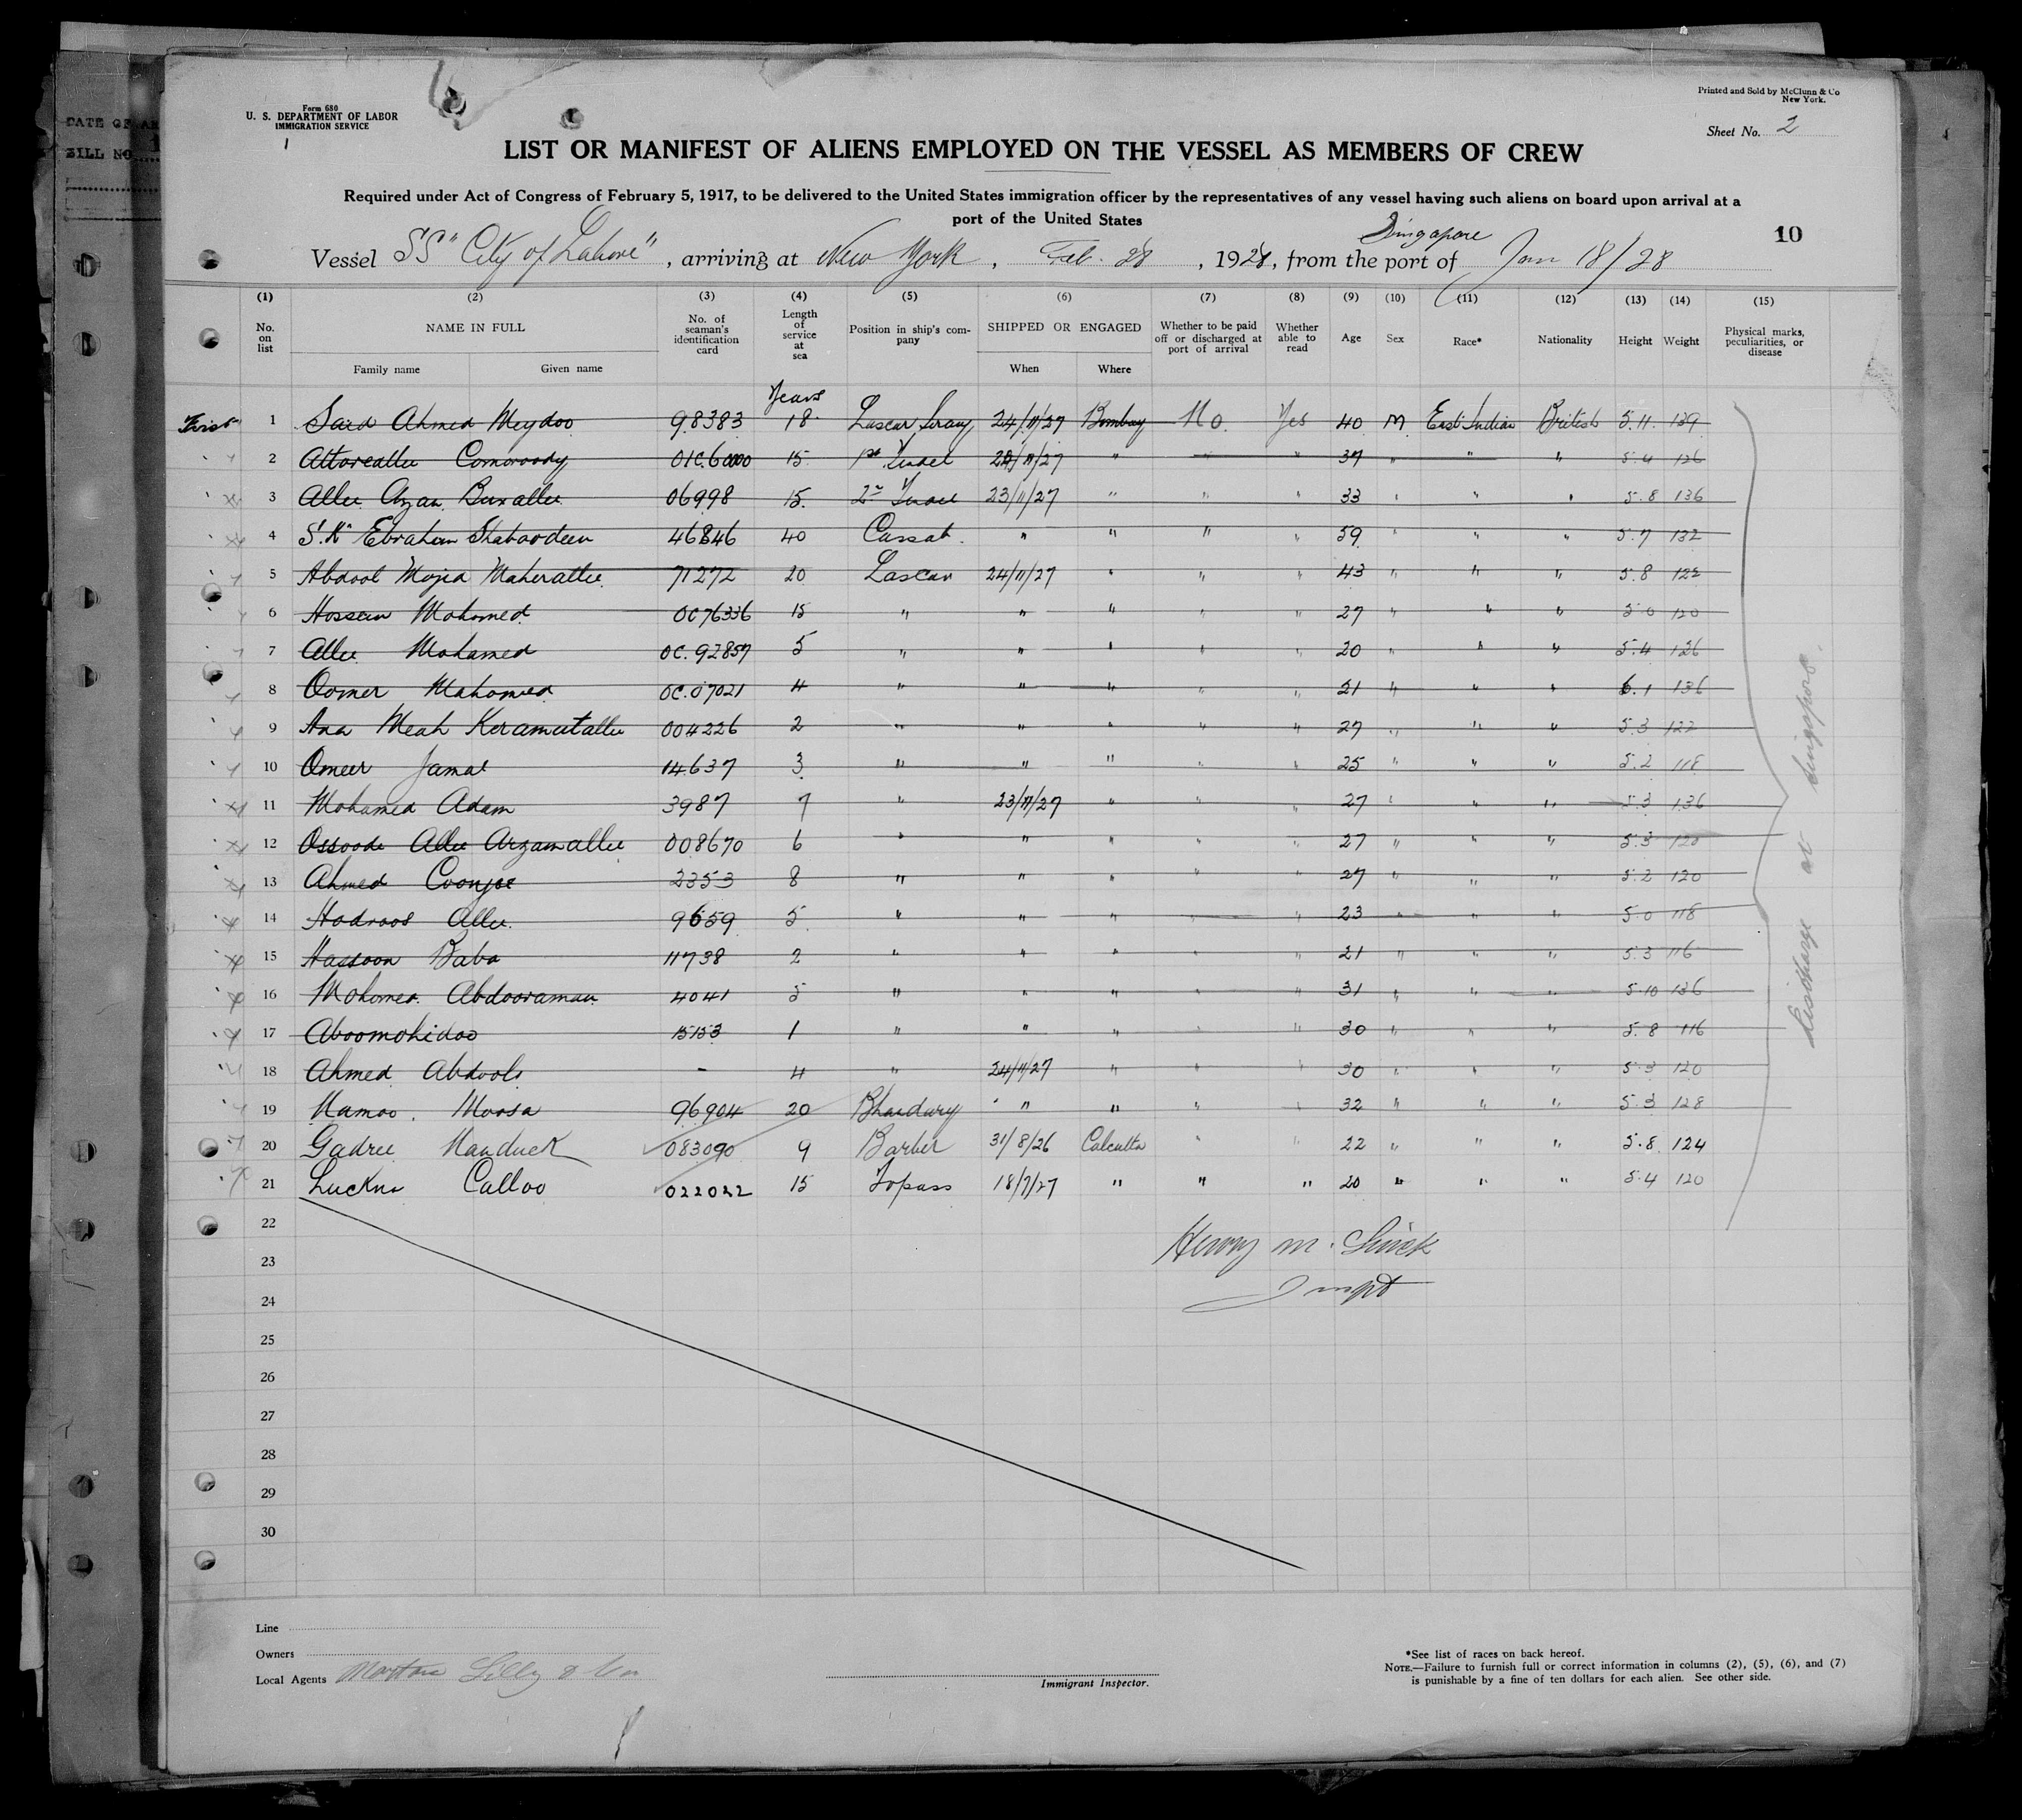 DATE OF AR
BILL NO. 1
Form 680
U. S. DEPARTMENT OF LABOR
IMMIGRATION SERVICE
Printed and Sold by McClunn & Co
New York.
Sheet No. 2
LIST OR MANIFEST OF ALIENS EMPLOYED ON THE VESSEL AS MEMBERS OF CREW
Required under Act of Congress of February 5, 1917, to be delivered to the United States immigration officer by the representatives of any vessel having such aliens on board upon arrival at a
port of the United States
10
Vessel SS "City of Lahore", arriving at New York, Feb. 28, 1928, from the port of Singapore Jan 18/28
(1) (2) (3) (4) (5) (6) (7) (8) (9) (10) (11) (12) (13) (14) (15)
No. on list NAME IN FULL Family name Given name No. of seaman's identification card Length of service at sea Position in ship's company SHIPPED OR ENGAGED When Where Whether to be paid off or discharged at port of arrival Whether able to read Age Sex Race* Nationality Height Weight Physical marks, peculiarities, or disease
Years
First 1 Said Ahmed Meydoo 98383 18 Lascar Serang 24/11/27 Bombay No Yes 40 M East Indian British 5.11 139
2 Comoroody 15 1st Tindel 24/11/27 " " " 37 " " " 5.4 126
3 Allee Azan Buxallee 06998 15 2nd Tindel 23/11/27 " " " 33 " " " 5.8 136
4 S.K. Ebrahim Shaboodeen 46846 40 Cassab " " " " 59 " " " 5.7 132
5 Abdool Mojid Maherallee 71272 20 Lascar 24/11/27 " " " 43 " " " 5.8 122
6 Hossein Mohomed 0C76336 15 " " " " " 27 " " " 5.0 120
7 Allee Mohamed 0C.92857 5 " " " " " 20 " " " 5.4 126
8 Oomer Mahomed 0C.07021 4 " " " " 21 " " " 6.1 136
9 Ana Meah Keramutallee 004226 2 " " " " " 27 " " " 5.3 122
10 Omeer Jamal 14637 3 " " " " 25 " " " 5.2 118
11 Mohamed Adam 3987 7 " 23/11/27 " " 27 " " " 5.3 136
12 Ossoode Allee Arzamallee 008670 6 " " " " " 27 " " " 5.3 120
13 Ahmed Coonjee 2353 8 " " " " " 27 " " " 5.2 120
14 Hadroos Allee 9659 5 " " " " " 23 " " " 5.0 118
15 Hassoon Baba 11738 2 " " " " " 21 " " " 5.3 116
16 Mohomed Abdooraman 4041 5 " " " " " 31 " " " 5.10 136
17 Aboomohidoo 15153 1 " " " " " 30 " " " 5.8 116
18 Ahmed Abdools - 4 " 24/11/27 " " " 30 " " " 5.3 120
19 Mamoo Moosa 96904 20 Bhandary " " " " 32 " " " 5.3 128
20 Gadree Manduck 083090 9 Barber 31/8/26 Calcutta " " 22 " " " 5.8 124
21 Luckna Calloo 022022 15 Topass 18/7/27 " " " 20 " " " 5.4 120
22
23
24
25
26
27
28
29
30
Discharge at Singapore.
Henry M.
Inspt
Line
Owners
Local Agents Norton Lilly & Co
Immigrant Inspector.
*See list of races on back hereof.
NOTE.—Failure to furnish full or correct information in columns (2), (5), (6), and (7)
is punishable by a fine of ten dollars for each alien. See other side.